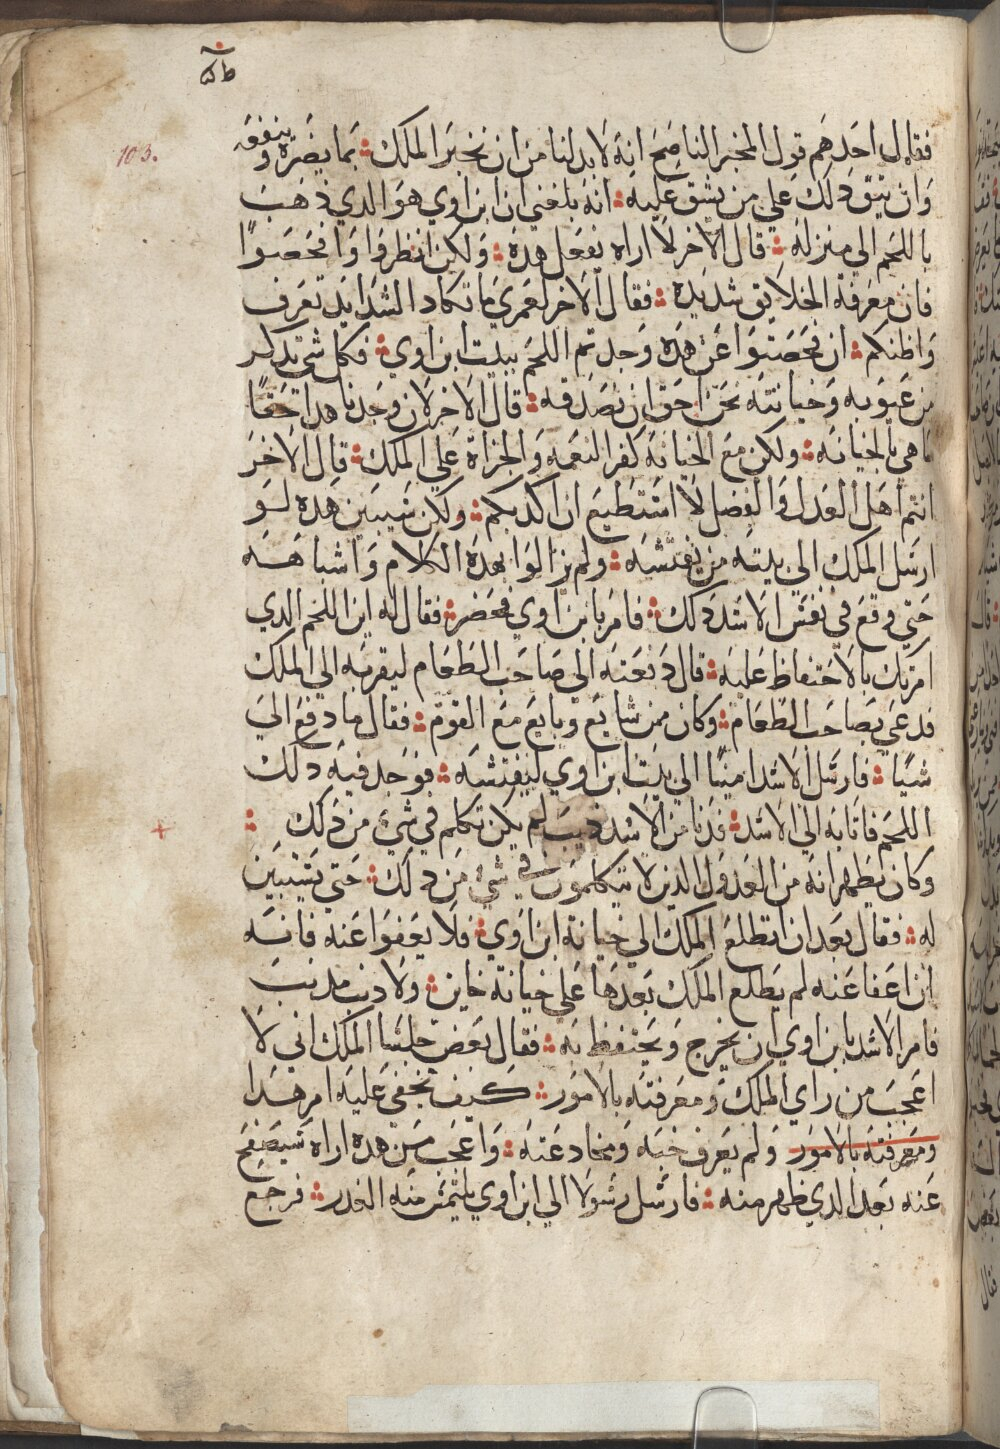 103.
فقال احدهم قول المخبر الناصح انه لا بد لنا من ان نخبر الملك؛ بما يضره وينفعه
وان يتق ذلك علي من يشق عليه؛ انه بلغني ان ابن اوي هو الدي دهب
باللحم الي منزله؛ قال الاخر لا اراه يفعل هده؛ ولكن انظروا وافحصوا
فان معرفة الخلايق شديدة؛ فقال الاخر لعمري ما تكاد الشدايد تعرف
واظنكم؛ ان فحصتوا عن هده وجدتم اللحم ببيت ابن اوي؛ فكل شي يدكر
من عيوبه وخيانته نحن احق ان نصدقه؛ قال الاخر لان وجدنا هدا حقًا
ما هي بالخيانه؛ ولكن مع الخيانة كفر النعمه والجراة علي الملك؛ قال الاخر
انتم اهل العدل والفضل لا استطيع ان اكدبكم؛ ولكن سيبين هده لو
ارسل الملك الي بيته من يفتشه؛ ولم يزالوا بهده الكلام واشباهه
حتي وقع في نفس الاسد دلك؛ فامر بابن اوي فحضر؛ فقال له اين اللحم الدي
امرتك بالاحتفاظ عليه؛ قال دفعته الي صاحب الطعام ليقربه الي الملك
فدعي بصاحب الطعام؛ وكان ممن شايع وبايع مع القوم؛ فقال ما دفع الي
شيًا؛ فارسل الاسد امينًا الي بيت ابن اوي ليفتشه؛ فوجد فيه دلك
اللحم فاتا به الي الاسد؛ فدنا من الاسد ديب لم يكن تكلم في شي من دلك؛
وكان يظهر انه من العدول الدين لا يتكلمون في شي من دلك؛ حتي يتبين
له؛ فقال بعد ان اطلع الملك الي خيانة ابن اوي؛ فلا يعفوا عنه فانه
ان اعفا عنه لم يطلع الملك بعدها علي خيانة خاين؛ ولا دنب مدنب
فامر الاسد بابن اوي ان يخرج ويحتفظ به؛ فقال بعض جلسا الملك اني لا
اعجب من راي الملك ومعرفته بالامور؛ كيف يخفي عليه امر هدا
ومعرفته بالامور ولم يعرف خبه ومخادعته؛ واعجب من هده اراه سيصفح
عنه بعد الدي ظهر منه؛ فارسل رسولا الي ابن اوي يلتمس منه العدر؛ فرجع